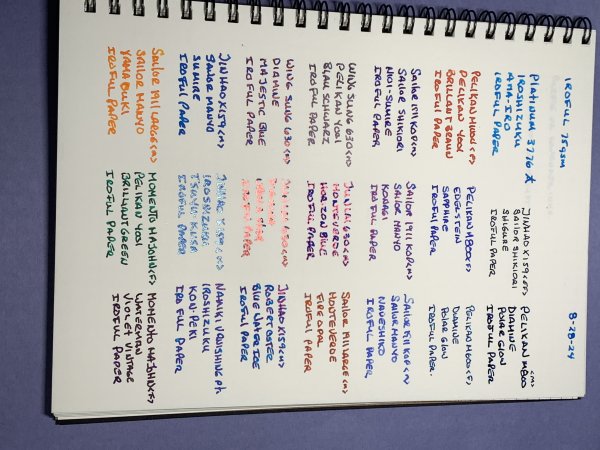 IROFUL 75gsm
8-28-24
PLATINUM 3776
IROSHIZUKU
AMA-IRO
IROFUL PAPER
JINHAO X159(EF)
SAILOR SHIKIORI
SHIGURE
IROFUL PAPER
PELIKAN M800(M)
DIAMINE
POLAR GLOW
IROFUL PAPER
PELIKAN M800(F)
PELIKAN 4001
BRILLIANT BRAUN
IROFUL PAPER
PELIKAN M800(F)
EDELSTEIN
SAPPHIRE
IROFUL PAPER
PELIKAN M800(F)
DIAMINE
POLAR GLOW
IROFUL PAPER.
SAILOR 1911 KOP(M)
SAILOR SHIKIORI
NIOI-SUMIRE
IROFUL PAPER
SAILOR 1911 KOP(M)
SAILOR MANYO
KODAGI
IROFUL PAPER
SAILOR 1911 KOP(M)
SAILOR MANYO
NADESHIKO
IROFUL PAPER
WING SUNG 630(M)
PELIKAN 4001
BLAU SCHWARZ
IROFUL PAPER
630(M)
MONTEVERDE
HORIZON BLUE
IROFUL PAPER
SAILOR 1911 LARGE(M)
MONTEVERDE
FIRE OPAL
IROFUL PAPER
WING SUNG 630(M)
DIAMINE
MAJESTIC BLUE
IROFUL PAPER
630(M)
JINHAO X159(M)
ROBERT OSTER
BLUE WATER ICE
IROFUL PAPER
JINHAO X159(M)
SAILOR MANYO
SUMIRE
IROFUL PAPER
JINHAO X159(M)
IROSHIZUKU
TSUYU-KUSA
IROFUL PAPER
NAMIKI VANISHING PH
IROSHIZUKU
KON-PEKI
IROFUL PAPER
SAILOR 1911 LARGE(M)
SAILOR MANYO
YAMABUKI
IROFUL PAPER
MOMENTO MAJOHN(F)
PELIKAN 4001
BRILLIANT GREEN
IROFUL PAPER
MOMENTO MAJOHN(F)
WATERMAN
VIOLET VINTAGE
IROFUL PAPER